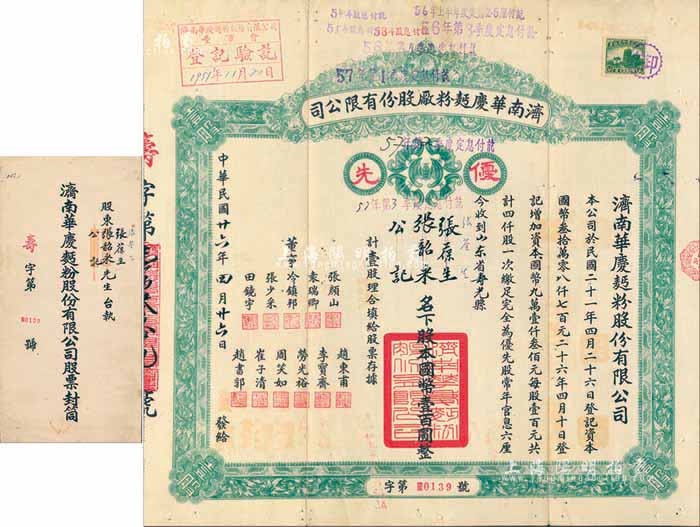 濟南華慶麵粉廠股份有限公司
登記驗訖
1951年11月20日
56年第3季度定息訖付
優先
濟南華慶麵粉股份有限公司
本公司於民國二十一年四月二十六日登記資本
國幣叁拾萬零八仟七百元二十六年四月十日登
記增加資本國幣九萬壹仟叁佰元每股壹百元共
計四仟股一次繳足完全為優先股常年官息六厘
今收到山東省壽光縣
張葆生
張韶采
公記
名下股本國幣壹百圓整
計壹股理合填給股票存據
董事
張顏山
袁瑞卿
冷鎮邦
張少采
田鏡宇
趙東甫
李寶齋
勞光裕
周笑如
崔子清
趙書郭
中華民國廿六年四月廿六日
發給
字第0139號
壽字第
股東
張葆生
張韶采先生台執
公記
濟南華慶麵粉股份有限公司股票封筒
壽字第0139號